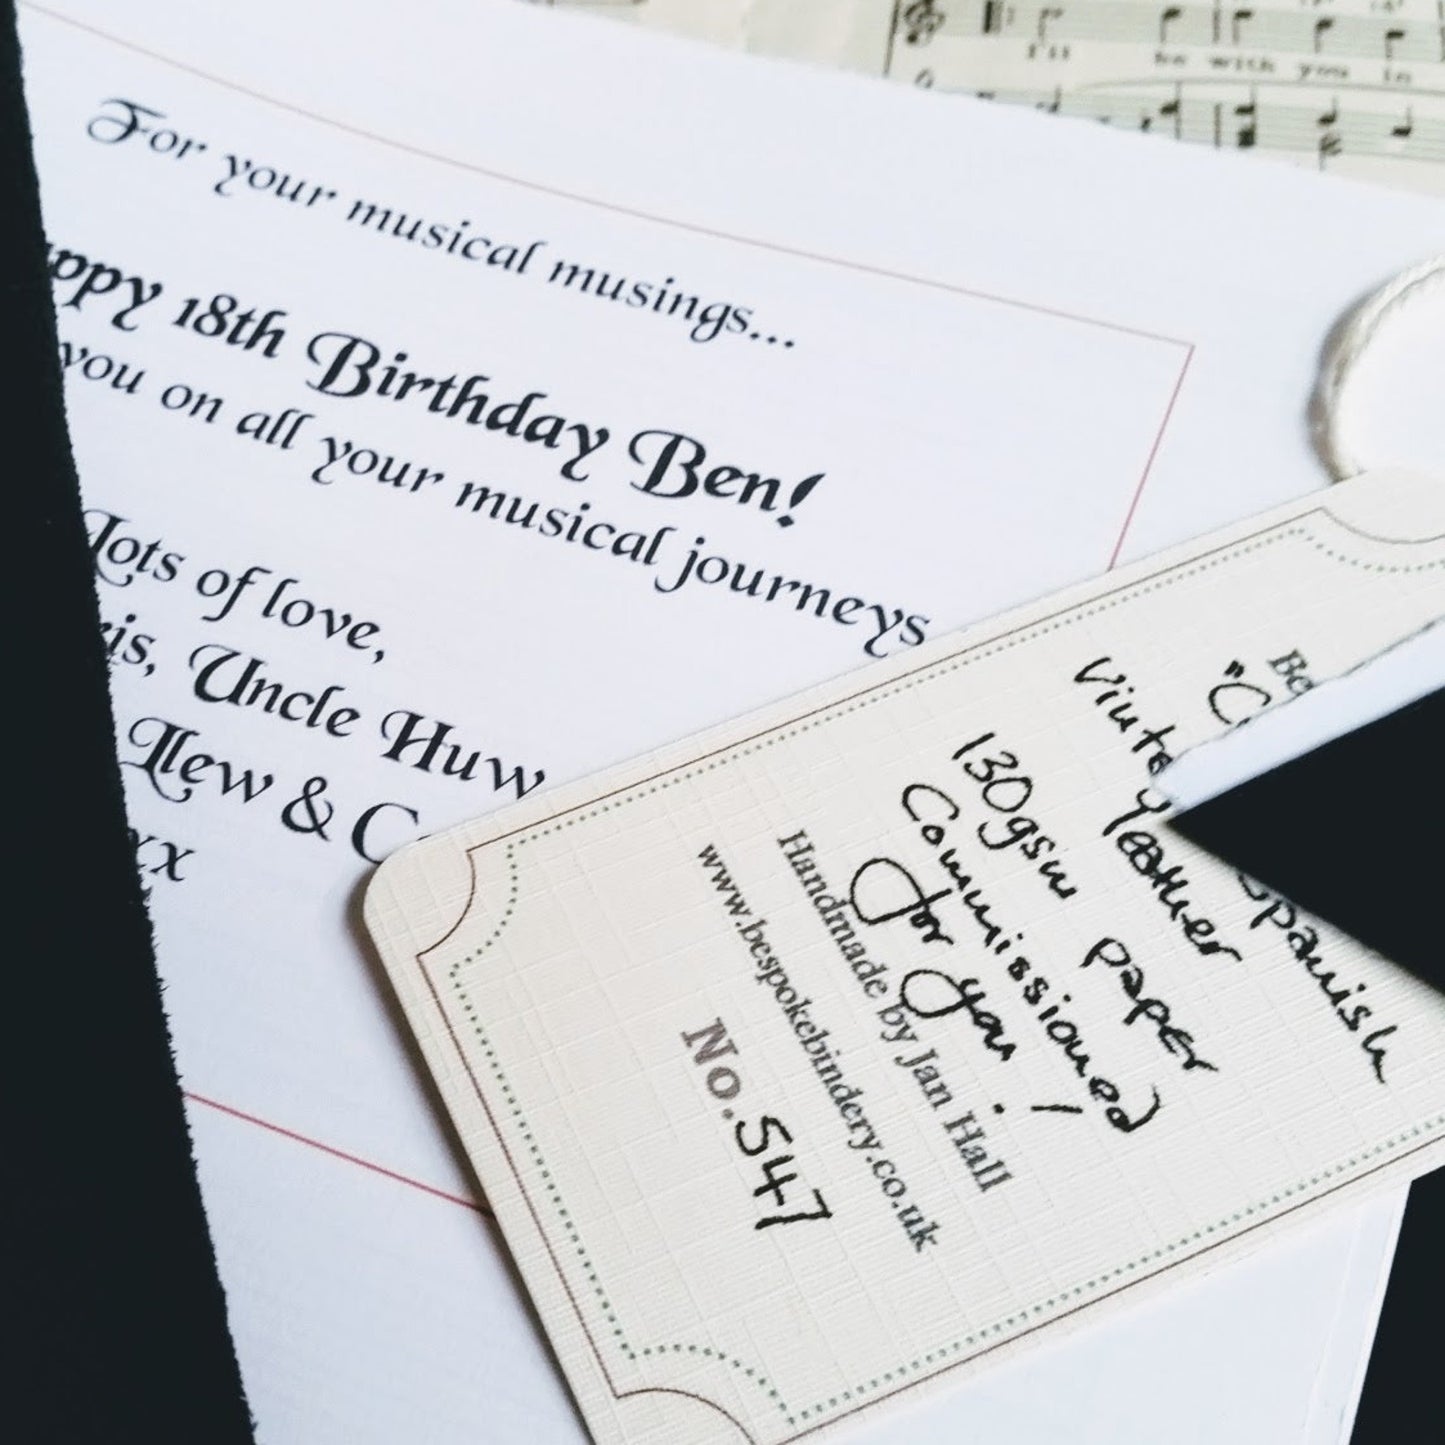 I'll be with you in
For your musical musings...
18th Birthday Ben!
you on all your musical journeys
Lots of love,
Uncle Huw
Llew &
xx
Spanish
leather
130gsm paper
Commissioned
for you!
Handmade by Jan Hall
www.bespokebindery.co.uk
No. 547